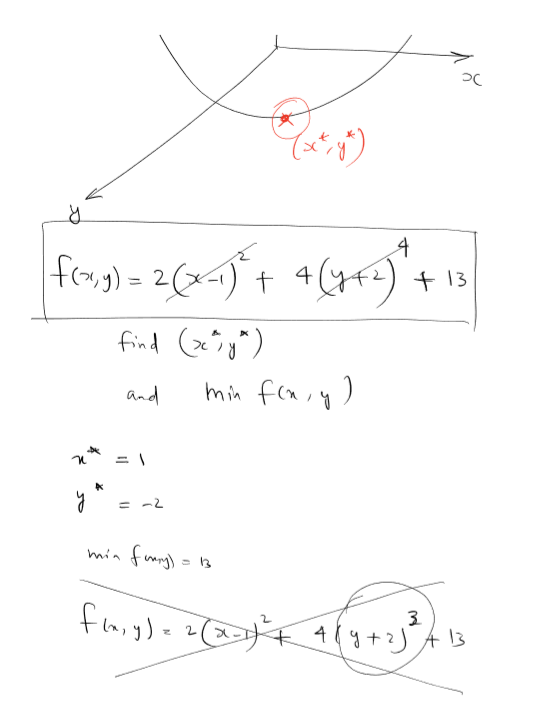 x
(x*, y*)
y
f(x,y) = 2(x-1)² + 4(y+2)⁴ + 13
find (x*, y*)
and min f(x, y)
x* = 1
y* = -2
min f(x,y) = 13
f(x, y) = 2(x-1)² + 4(y+2)³ + 13